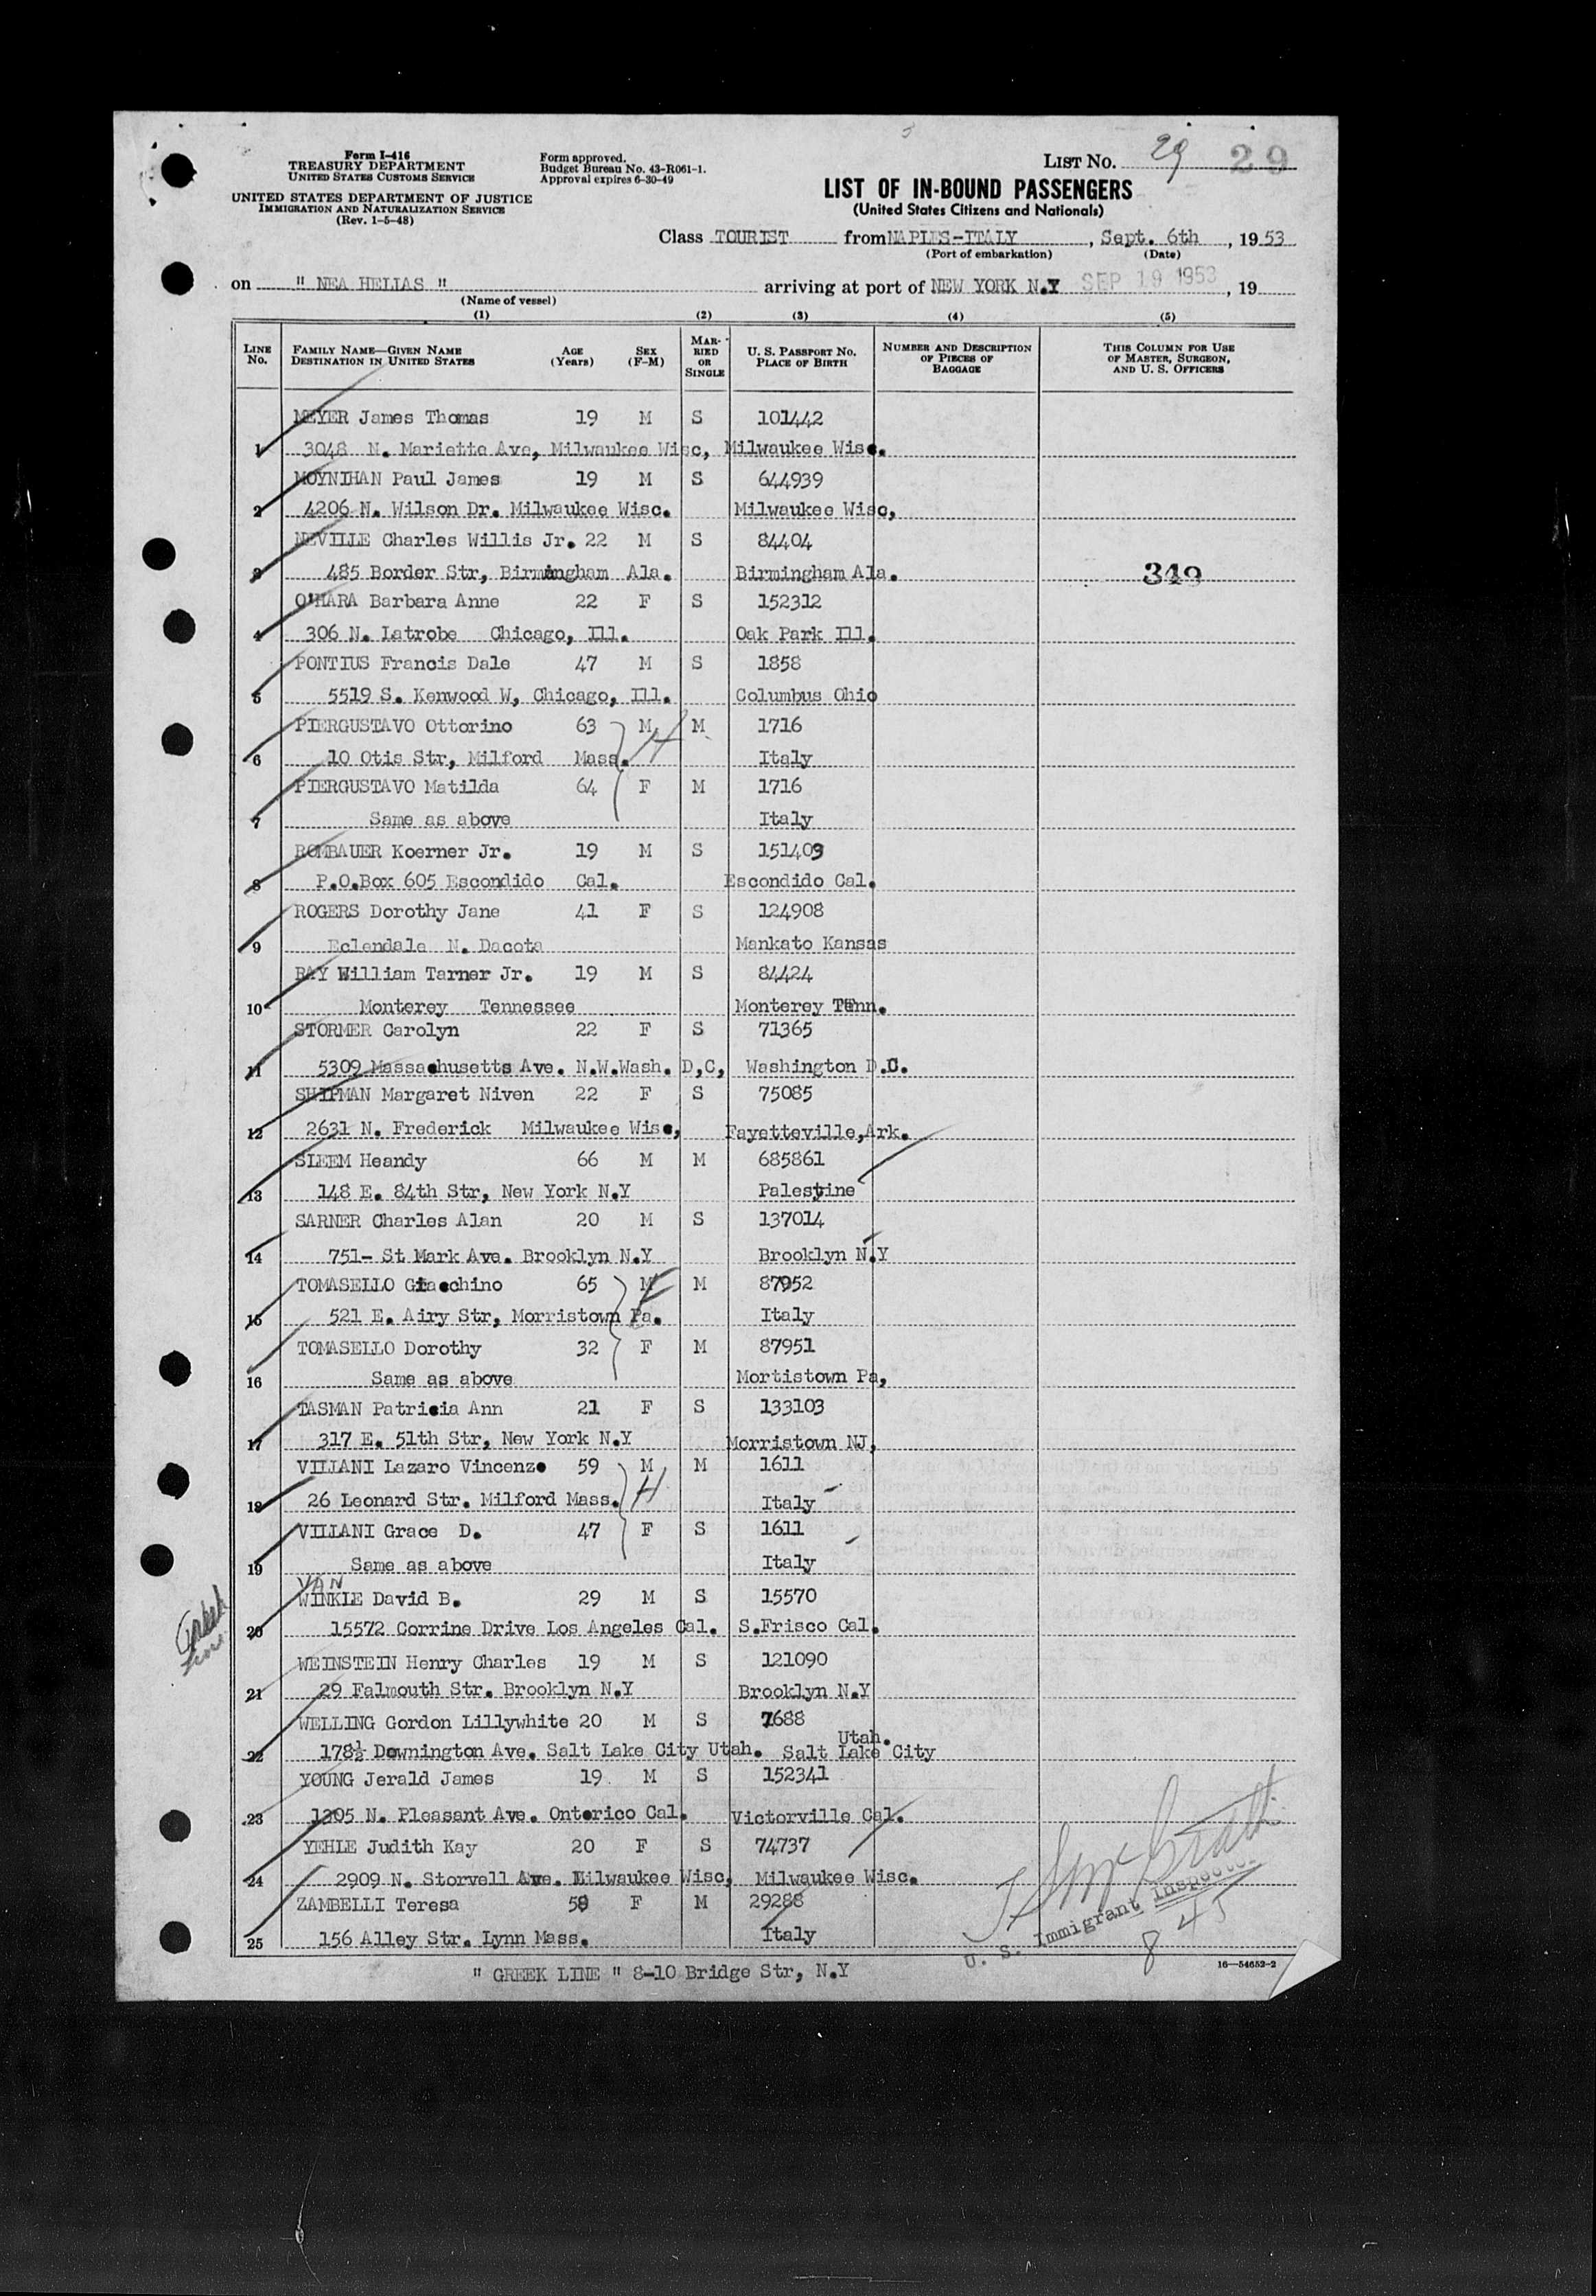 Form I-416
TREASURY DEPARTMENT
UNITED STATES CUSTOMS SERVICE
UNITED STATES DEPARTMENT OF JUSTICE
IMMIGRATION AND NATURALIZATION SERVICE
(Rev. 1-5-48)
Form approved.
Budget Bureau No. 43-R061-1.
Approval expires 6-30-49
LIST No. 29 29
LIST OF IN-BOUND PASSENGERS
(United States Citizens and Nationals)
Class TOURIST from NAPLES-ITALY, Sept. 6th, 1953
(Port of embarkation) (Date)
on " NEA HELIAS " arriving at port of NEW YORK N.Y SEP 19 1953, 19
(Name of vessel)
(1) (2) (3) (4) (5)
LINE No. FAMILY NAME—GIVEN NAME DESTINATION IN UNITED STATES AGE (Years) SEX (F-M) MARRIED OR SINGLE U. S. PASSPORT No. PLACE OF BIRTH NUMBER AND DESCRIPTION OF PIECES OF BAGGAGE THIS COLUMN FOR USE OF MASTER, SURGEON, AND U. S. OFFICERS
MEYER James Thomas 19 M S 101442
1 3048 N. Mariette Ave, Milwaukee Wisc, Milwaukee Wisc.
MOYNIHAN Paul James 19 M S 644939
2 4206 N. Wilson Dr. Milwaukee Wisc. Milwaukee Wisc,
NEVILLE Charles Willis Jr. 22 M S 84404
3 485 Border Str, Birmingham Ala. Birmingham Ala. 349
O'HARA Barbara Anne 22 F S 152312
4 306 N. Latrobe Chicago, Ill. Oak Park Ill.
PONTIUS Francis Dale 47 M S 1858
5 5519 S. Kenwood W, Chicago, Ill. Columbus Ohio
PIERGUSTAVO Ottorino 63 M M 1716
6 10 Otis Str, Milford Mass. Italy
PIERGUSTAVO Matilda 64 F M 1716
7 Same as above Italy
ROMBAUER Koerner Jr. 19 M S 151409
8 P.O.Box 605 Escondido Cal. Escondido Cal.
ROGERS Dorothy Jane 41 F S 124908
9 Eclendale N. Dacota Mankato Kansas
RAY William Tarner Jr. 19 M S 84424
10 Monterey Tennessee Monterey Tenn.
STORMER Carolyn 22 F S 71365
11 5309 Massachusetts Ave. N.W.Wash. D,C, Washington D.C.
SHIPMAN Margaret Niven 22 F S 75085
12 2631 N. Frederick Milwaukee Wisc, Fayetteville,Ark.
SLEEM Heandy 66 M M 685861
13 148 E. 84th Str, New York N.Y Palestine
SARNER Charles Alan 20 M S 137014
14 751- St Mark Ave. Brooklyn N.Y Brooklyn N.Y
TOMASELLO Giacchino 65 M M 87952
15 521 E. Airy Str, Morristown Pa. Italy
TOMASELLO Dorothy 32 F M 87951
16 Same as above Mortistown Pa,
TASMAN Patricia Ann 21 F S 133103
17 317 E. 51th Str, New York N.Y Morristown NJ,
VILLANI Lazaro Vincenzo 59 M M 1611
18 26 Leonard Str. Milford Mass. H Italy
VILLANI Grace D. 47 F S 1611
19 Same as above Italy
VAN
WINKLE David B. 29 M S 15570
Greek Line 20 15572 Corrine Drive Los Angeles Cal. S.Frisco Cal.
WEINSTEIN Henry Charles 19 M S 121090
21 29 Falmouth Str. Brooklyn N.Y Brooklyn N.Y
WELLING Gordon Lillywhite 20 M S 7688
22 178½ Downington Ave. Salt Lake City Utah. Salt Lake City Utah.
YOUNG Jerald James 19 M S 152341
23 1205 N. Pleasant Ave. Onterico Cal. Victorville Cal.
YEHLE Judith Kay 20 F S 74737
24 2909 N. Storvell Ave. Milwaukee Wisc, Milwaukee Wisc.
ZAMBELLI Teresa 58 F M 29288
25 156 Alley Str. Lynn Mass. Italy
U. S. Immigrant Inspector
845
" GREEK LINE " 8-10 Bridge Str, N.Y
16—54652-2